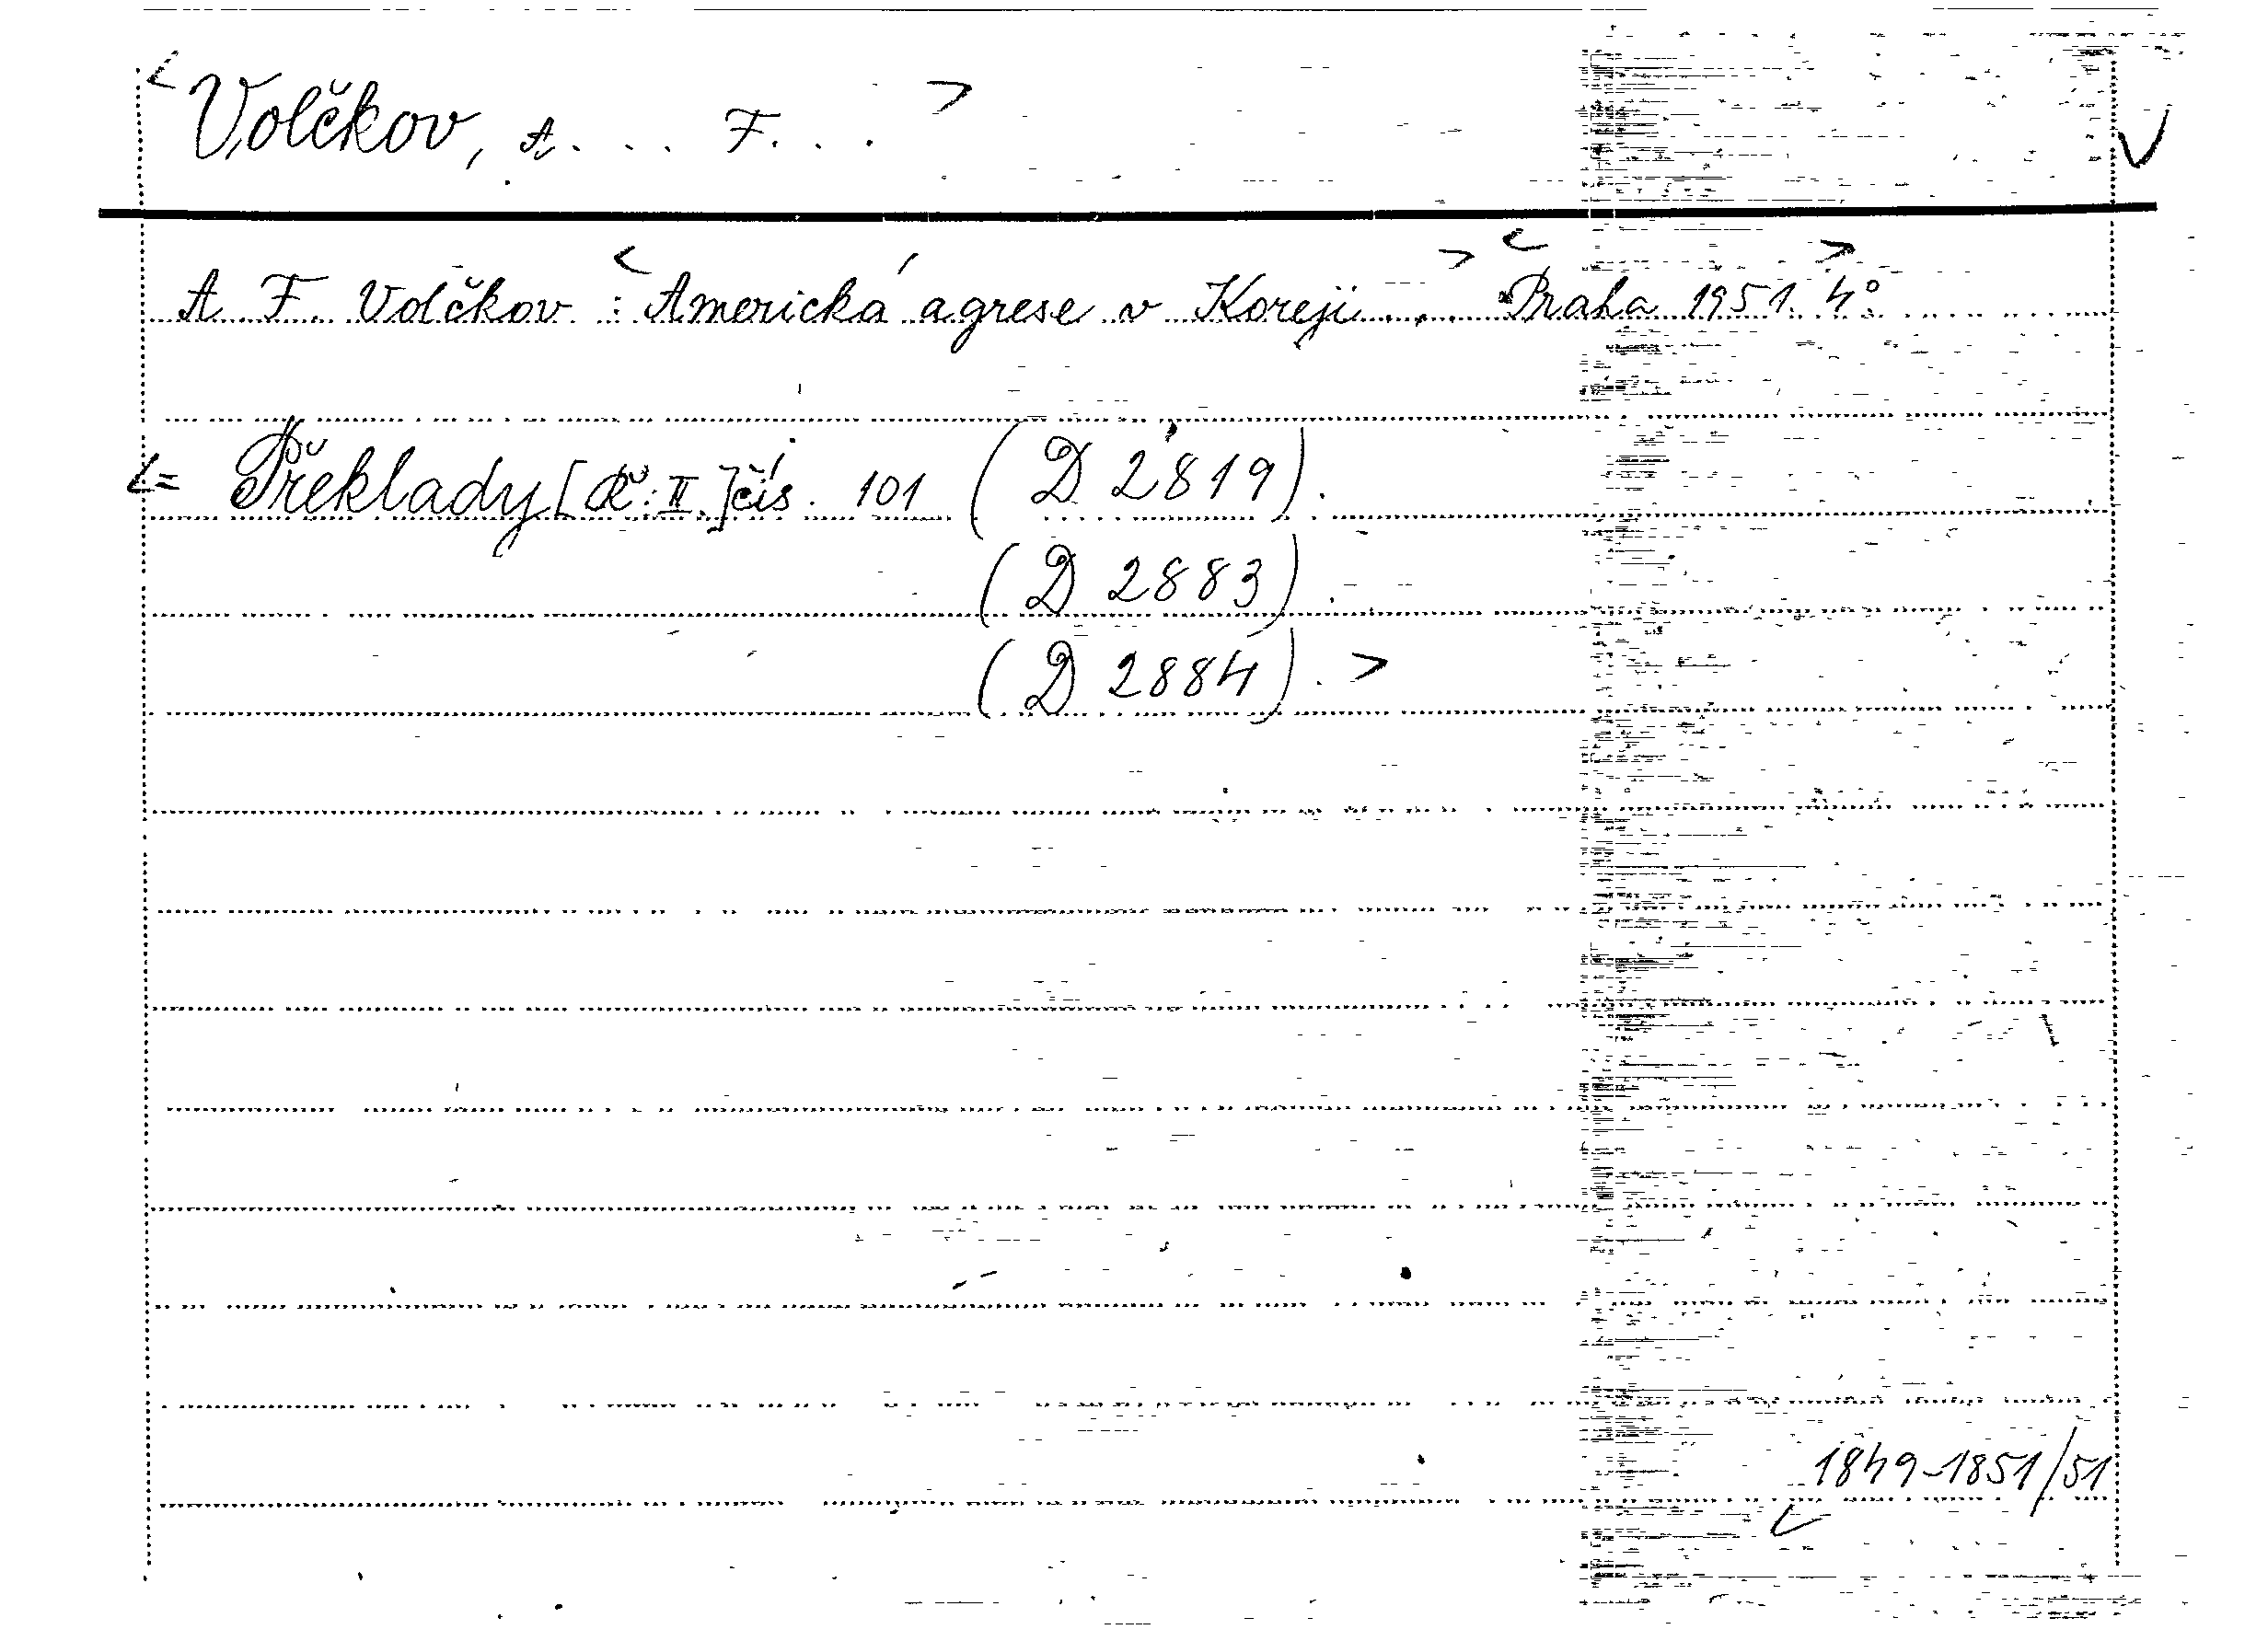 < Volčkov, A... F... >
A. F. Volčkov : < Americká agrese v Koreji... > < Praha 1951. 4° >
<= Překlady [Ř: II.] čís. 101 (D 2819).
(D 2883).
(D 2884). >
1849-1851/51